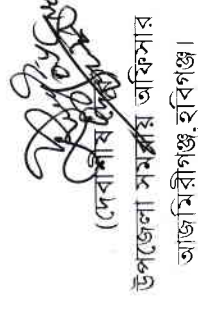 (দেবাশীষ
উপজেলা সমবায় অফিসার
আজমিরীগঞ্জ, হবিগঞ্জ।